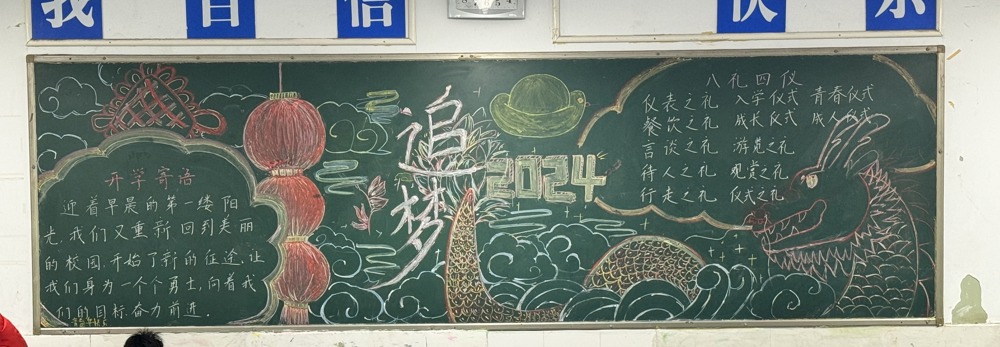 我自信
快乐
追梦
2024
开学寄语
迎着早晨的第一缕阳
光，我们又重新回到美丽
的校园，开始了新的征途，让
我们身为一个个勇士，向着我
们的目标，奋力前进．
八礼四仪
仪表之礼 入学仪式 青春仪式
餐饮之礼 成长仪式 成人仪式
言谈之礼 游览之礼
待人之礼 观赏之礼
行走之礼 仪式之礼